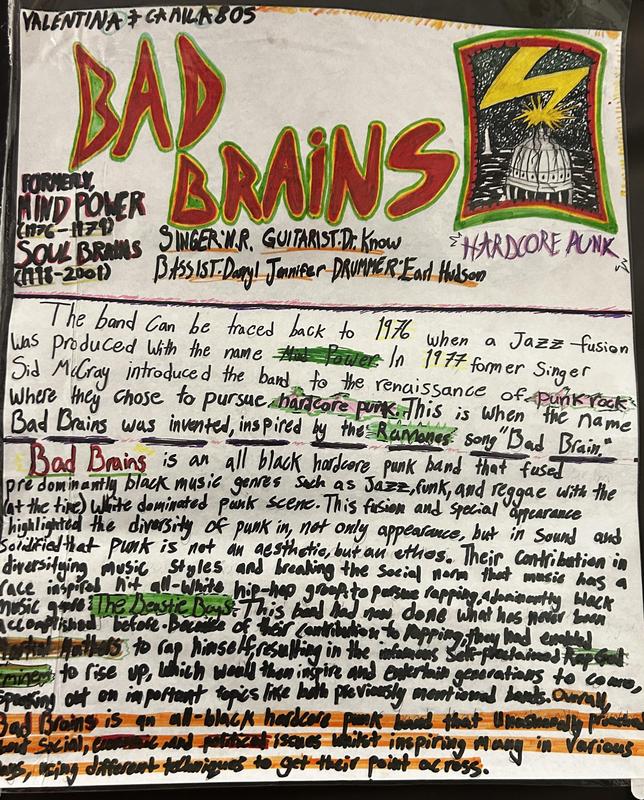 VALENTINA & CAMILA BOS
BAD
BRAINS
FORMERLY,
MIND POWER
(1976-1979)
SOUL BRAINS
(1998-2001)
SINGER: H.R. GUITARIST: Dr. Know
BASSIST: Darryl Jennifer DRUMMER: Earl Hudson
HARDCORE PUNK
The band can be traced back to 1976 when a Jazz-fusion
was produced with the name Mind Power In 1977 former Singer
Sid McCray introduced the band to the renaissance of punk rock
where they chose to pursue hardcore punk. This is when the name
Bad Brains was invented, inspired by the Ramones song "Bad Brain."
Bad Brains is an all black hardcore punk band that fused
predominantly black music genres such as Jazz, funk, and reggae with the
(at the time) white dominated punk scene. This fusion and special appearance
highlighted the diversity of punk in, not only appearance, but in Sound and
solidified that punk is not an aesthetic, but an ethos. Their contribution in
diversifying music styles and breaking the social norm that music has a
race inspired hit all-white hip-hop group, to pursue rapping, a dominantly black
music genre: The Beastie Boys. This band had now done what has never been
accomplished before. Because of their contribution to Rapping, they had enabled
Mathers to rap himself, resulting in the infamous self-proclaimed Rap God
Eminem to rise up, which would then inspire and entertain generations to come,
speaking out on important topics like both previously mentioned bands. Overall,
Bad Brains is an all-black hardcore punk band that
Social, economic and political issues whilst inspiring many in various
ways, using different techniques to get their point across.